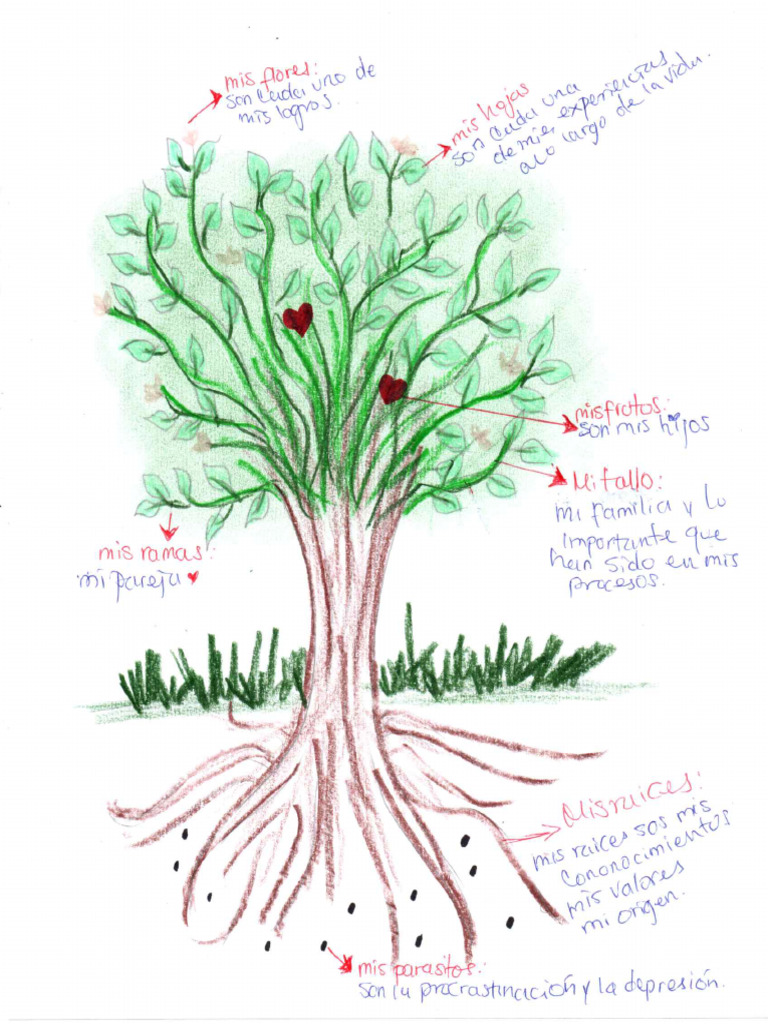 mis flores:
son cada uno de
mis logros.
mis hojas
son cada una
de mies experiencias
a lo largo de la vida.
mis frotos:
son mis hijos
Mi tallo:
mi familia y lo
importante que
han sido en mis
procesos.
mis ramas:
mi pareja
Mis raices:
mis raices sos mis
cononocimientos
mis valores
mi origen.
mis parasitos:
son la procrastinación y la depresión.